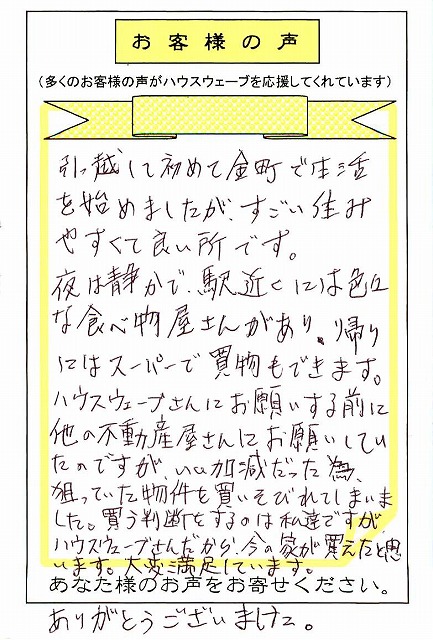 お客様の声
(多くのお客様の声がハウスウェーブを応援してくれています)
引越して初めて金町で生活
を始めましたが、すごい住み
やすくて良い所です。
夜は静かで、駅近くには色々
な食べ物屋さんがあり、帰り
にはスーパーで買物もできます。
ハウスウェーブさんにお願いする前に
他の不動産屋さんにお願いしてい
たのですが、いい加減だった為、
狙っていた物件を買いそびれてしまいま
した。買う判断をするのは私達ですが
ハウスウェーブさんだから、今の家が買えたと思
います。大変満足しています。
あなた様のお声をお寄せください。
ありがとうございました。